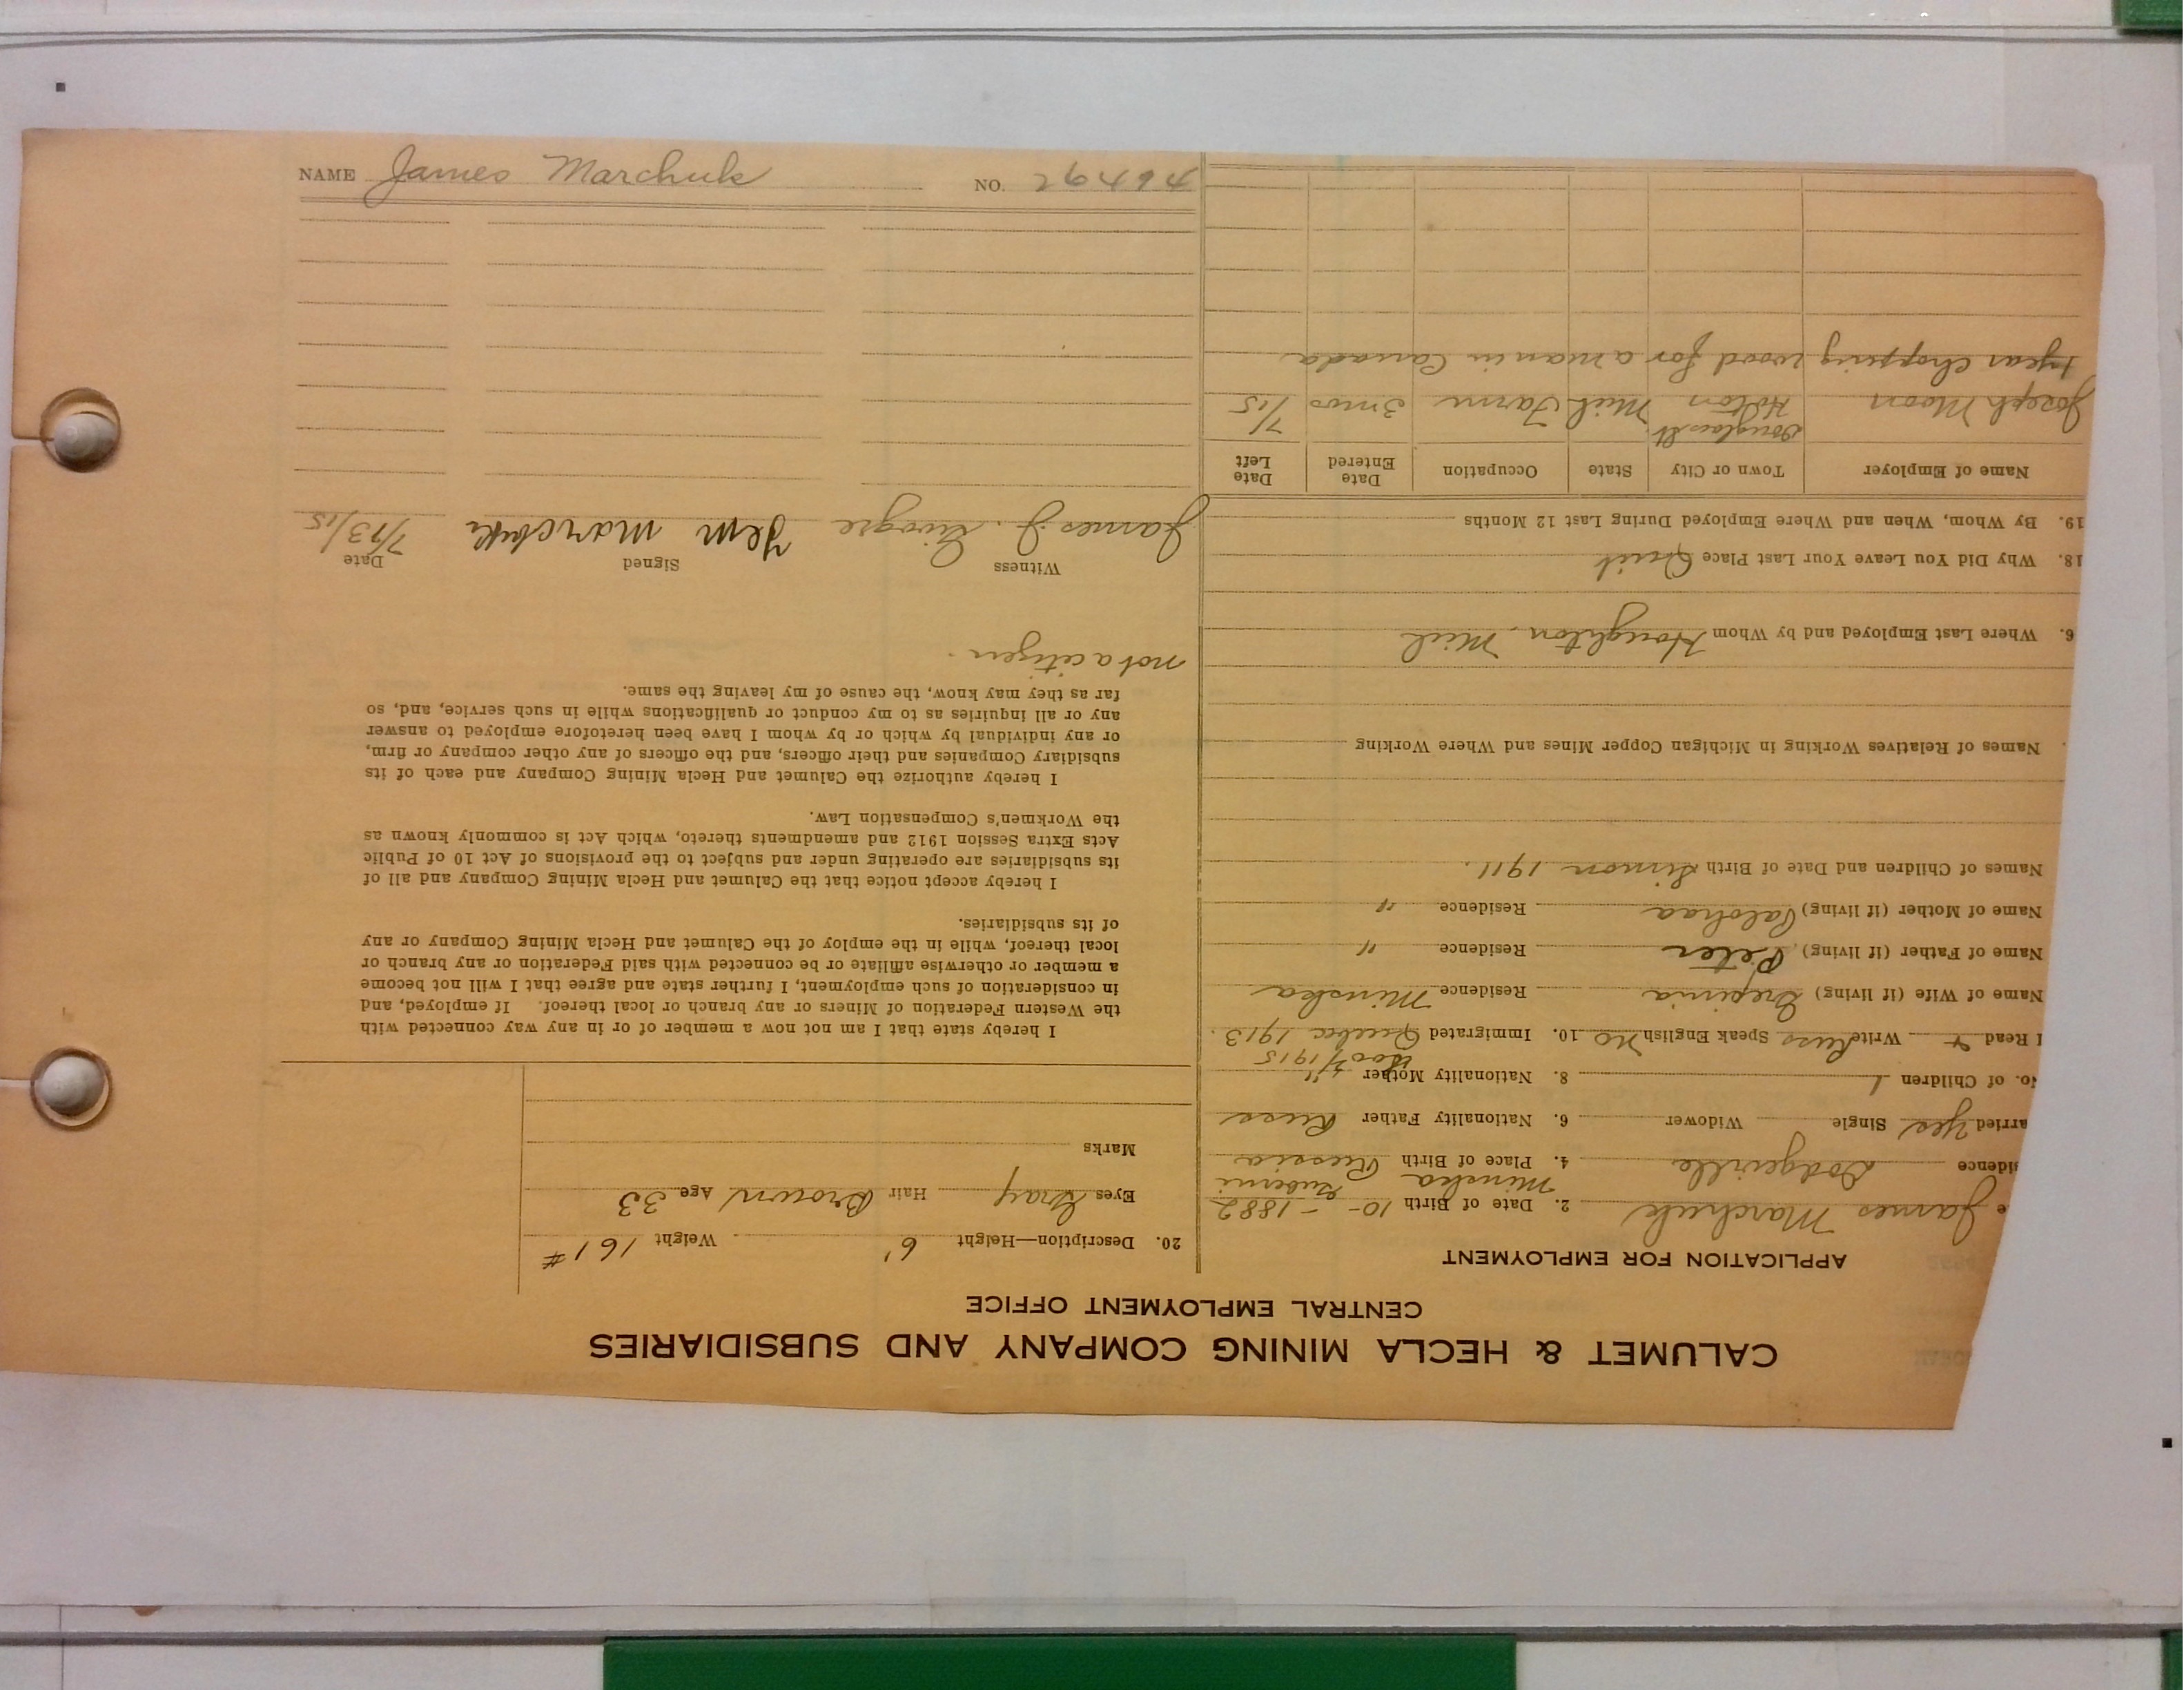 CALUMET & HECLA MINING COMPANY AND SUBSIDIARIES
CENTRAL EMPLOYMENT OFFICE
APPLICATION FOR EMPLOYMENT
e James Marchuk 2. Date of Birth 10- - 1882
Minska Guberni
sidence Dodgeville 4. Place of Birth Russia
arried Yes Single Widower 6. Nationality Father Russ
No. of Children 1 8. Nationality Mother "
1915
Read & Write Russ Speak English no 10. Immigrated Quebec 1913.
Name of Wife (if living) Residence Minska
Name of Father (if living) Peter Residence "
Name of Mother (if living) Residence "
Names of Children and Date of Birth Simon 1911.
Names of Relatives Working in Michigan Copper Mines and Where Working
6. Where Last Employed and by Whom Houghton, Mich
18. Why Did You Leave Your Last Place Quit
19. By Whom, When and Where Employed During Last 12 Months
Name of Employer Town or City State Occupation Date Entered Date Left
Joseph Moon Mich Farm 3 mos 7/15
1 year chopping wood for a man in Canada
20. Description—Height 6' Weight 161 #
Eyes Gray Hair Brown Age 33
Marks
I hereby state that I am not now a member of or in any way connected with
the Western Federation of Miners or any branch or local thereof. If employed, and
in consideration of such employment, I further state and agree that I will not become
a member or otherwise affiliate or be connected with said Federation or any branch or
local thereof, while in the employ of the Calumet and Hecla Mining Company or any
of its subsidiaries.
I hereby accept notice that the Calumet and Hecla Mining Company and all of
its subsidiaries are operating under and subject to the provisions of Act 10 of Public
Acts Extra Session 1912 and amendments thereto, which Act is commonly known as
the Workmen's Compensation Law.
I hereby authorize the Calumet and Hecla Mining Company and each of its
subsidiary Companies and their officers, and the officers of any other company or firm,
or any individual by which or by whom I have been heretofore employed to answer
any or all inquiries as to my conduct or qualifications while in such service, and, so
far as they may know, the cause of my leaving the same.
not a citizen.
Witness Signed Date
James J. Jem marchuk 7/13/15
NAME James Marchuk NO. 29494